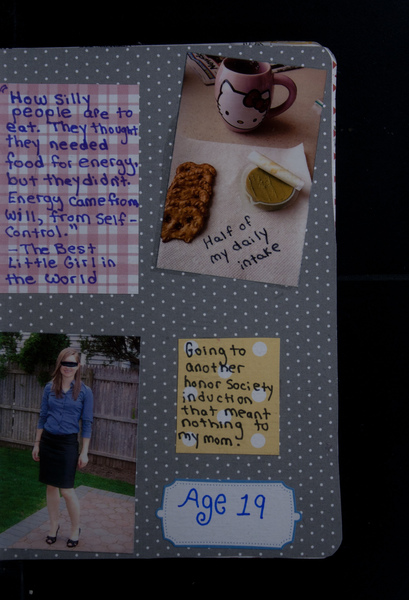 "How silly
people are to
eat. They thought
they needed
food for energy,
but they didn't.
Energy came from
will, from self-
control."
-The Best
Little Girl in
the World
Half of
my daily
intake
Going to
another
honor Society
induction
that meant
nothing to
my mom.
Age 19